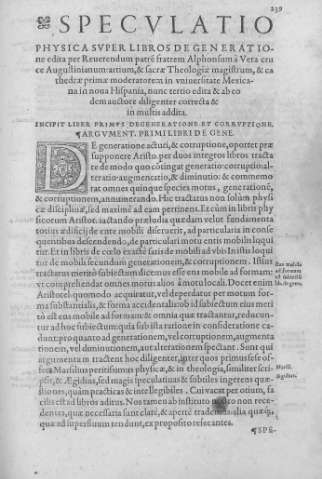 239
SPECVLATIO
PHYSICA SVPER LIBROS DE GENERATIO-
ne edita per Reuerendum patrē fratrem Alphonsum à Vera cru
ce Augustinianum: artium, & sacræ Theologiæ magistrum, & ca
thedræ primæ moderatorem in vniuersitate Mexica-
na in noua Hispania, nunc tertio edita & ab eo
dem auctore diligenter correcta &
in multis addita.
INCIPIT LIBER PRIMVS DE GENERATIONE ET CORRVPTIONE.
¶ARGVMENT. PRIMI LIBRI DE GENE.
DE generatione acturi, & corruptione, oportet præ
supponere Aristo. per duos integros libros tracta
re de modo quo cōtingat generatio: corruptio: al-
teratio: augmentatio, & diminutio: & commemo
rat omnes quinque species motus, generationē,
& corruptionem, annumerando. Hic tractatus non solùm physi
cæ disciplinæ, sed maximè ad eam pertinens. Etcùm in libris phy
sicorum Aristot. iactando præludia quæ dam velut fundamenta
totius
de mobili disseruit, ad particularia in conse
quentibus descendendo, de particulari motu entis mobilis loqui
tur. Et in libris de cœlo exactè satis de mobili ad vbi. In istis loqui
tur de mobili secundùm generationem, & corruptionem. Istius
tractatus meritò subiectum dicimus esse ens mobile ad formam:
vt comprehendat omnes motus alios à motu locali. Docet enim
Aristotel. quomodo acquiratur, vel deperdatur per motum for-
ma substantialis, & forma accidentalis ab subiectum eius meri
tò est ens mobile ad formam: & omnia quæ tractantur, reducun-
tur ad hoc subiectum: quia sub ista ratione in consideratione ca-
dunt: pro quanto ad generationem, vel corruptionem, augmenta
tionem, vel diminutionem, aut alterationem spectant. Sunt qui
argumenta tractent hoc diligenter, inter quos primus sese of-
fert Marsilius peritissimus physicæ, & in theologia, similiter scri-
psit, & Ægidius, sed magis speculatiuas & subtiles ingerens quæ-
stiones, quàm practicas & intellegibiles. Cui vacat per otium, fa
cilis est ad libros aditus. Nos tamen ab instituto non rece-
dentes, quæ necessaria sunt clarè, & apertè
quæ ad superfluum tendunt, ex proposito resecantes.
Marsil.
Ægidius.
¶SPE-